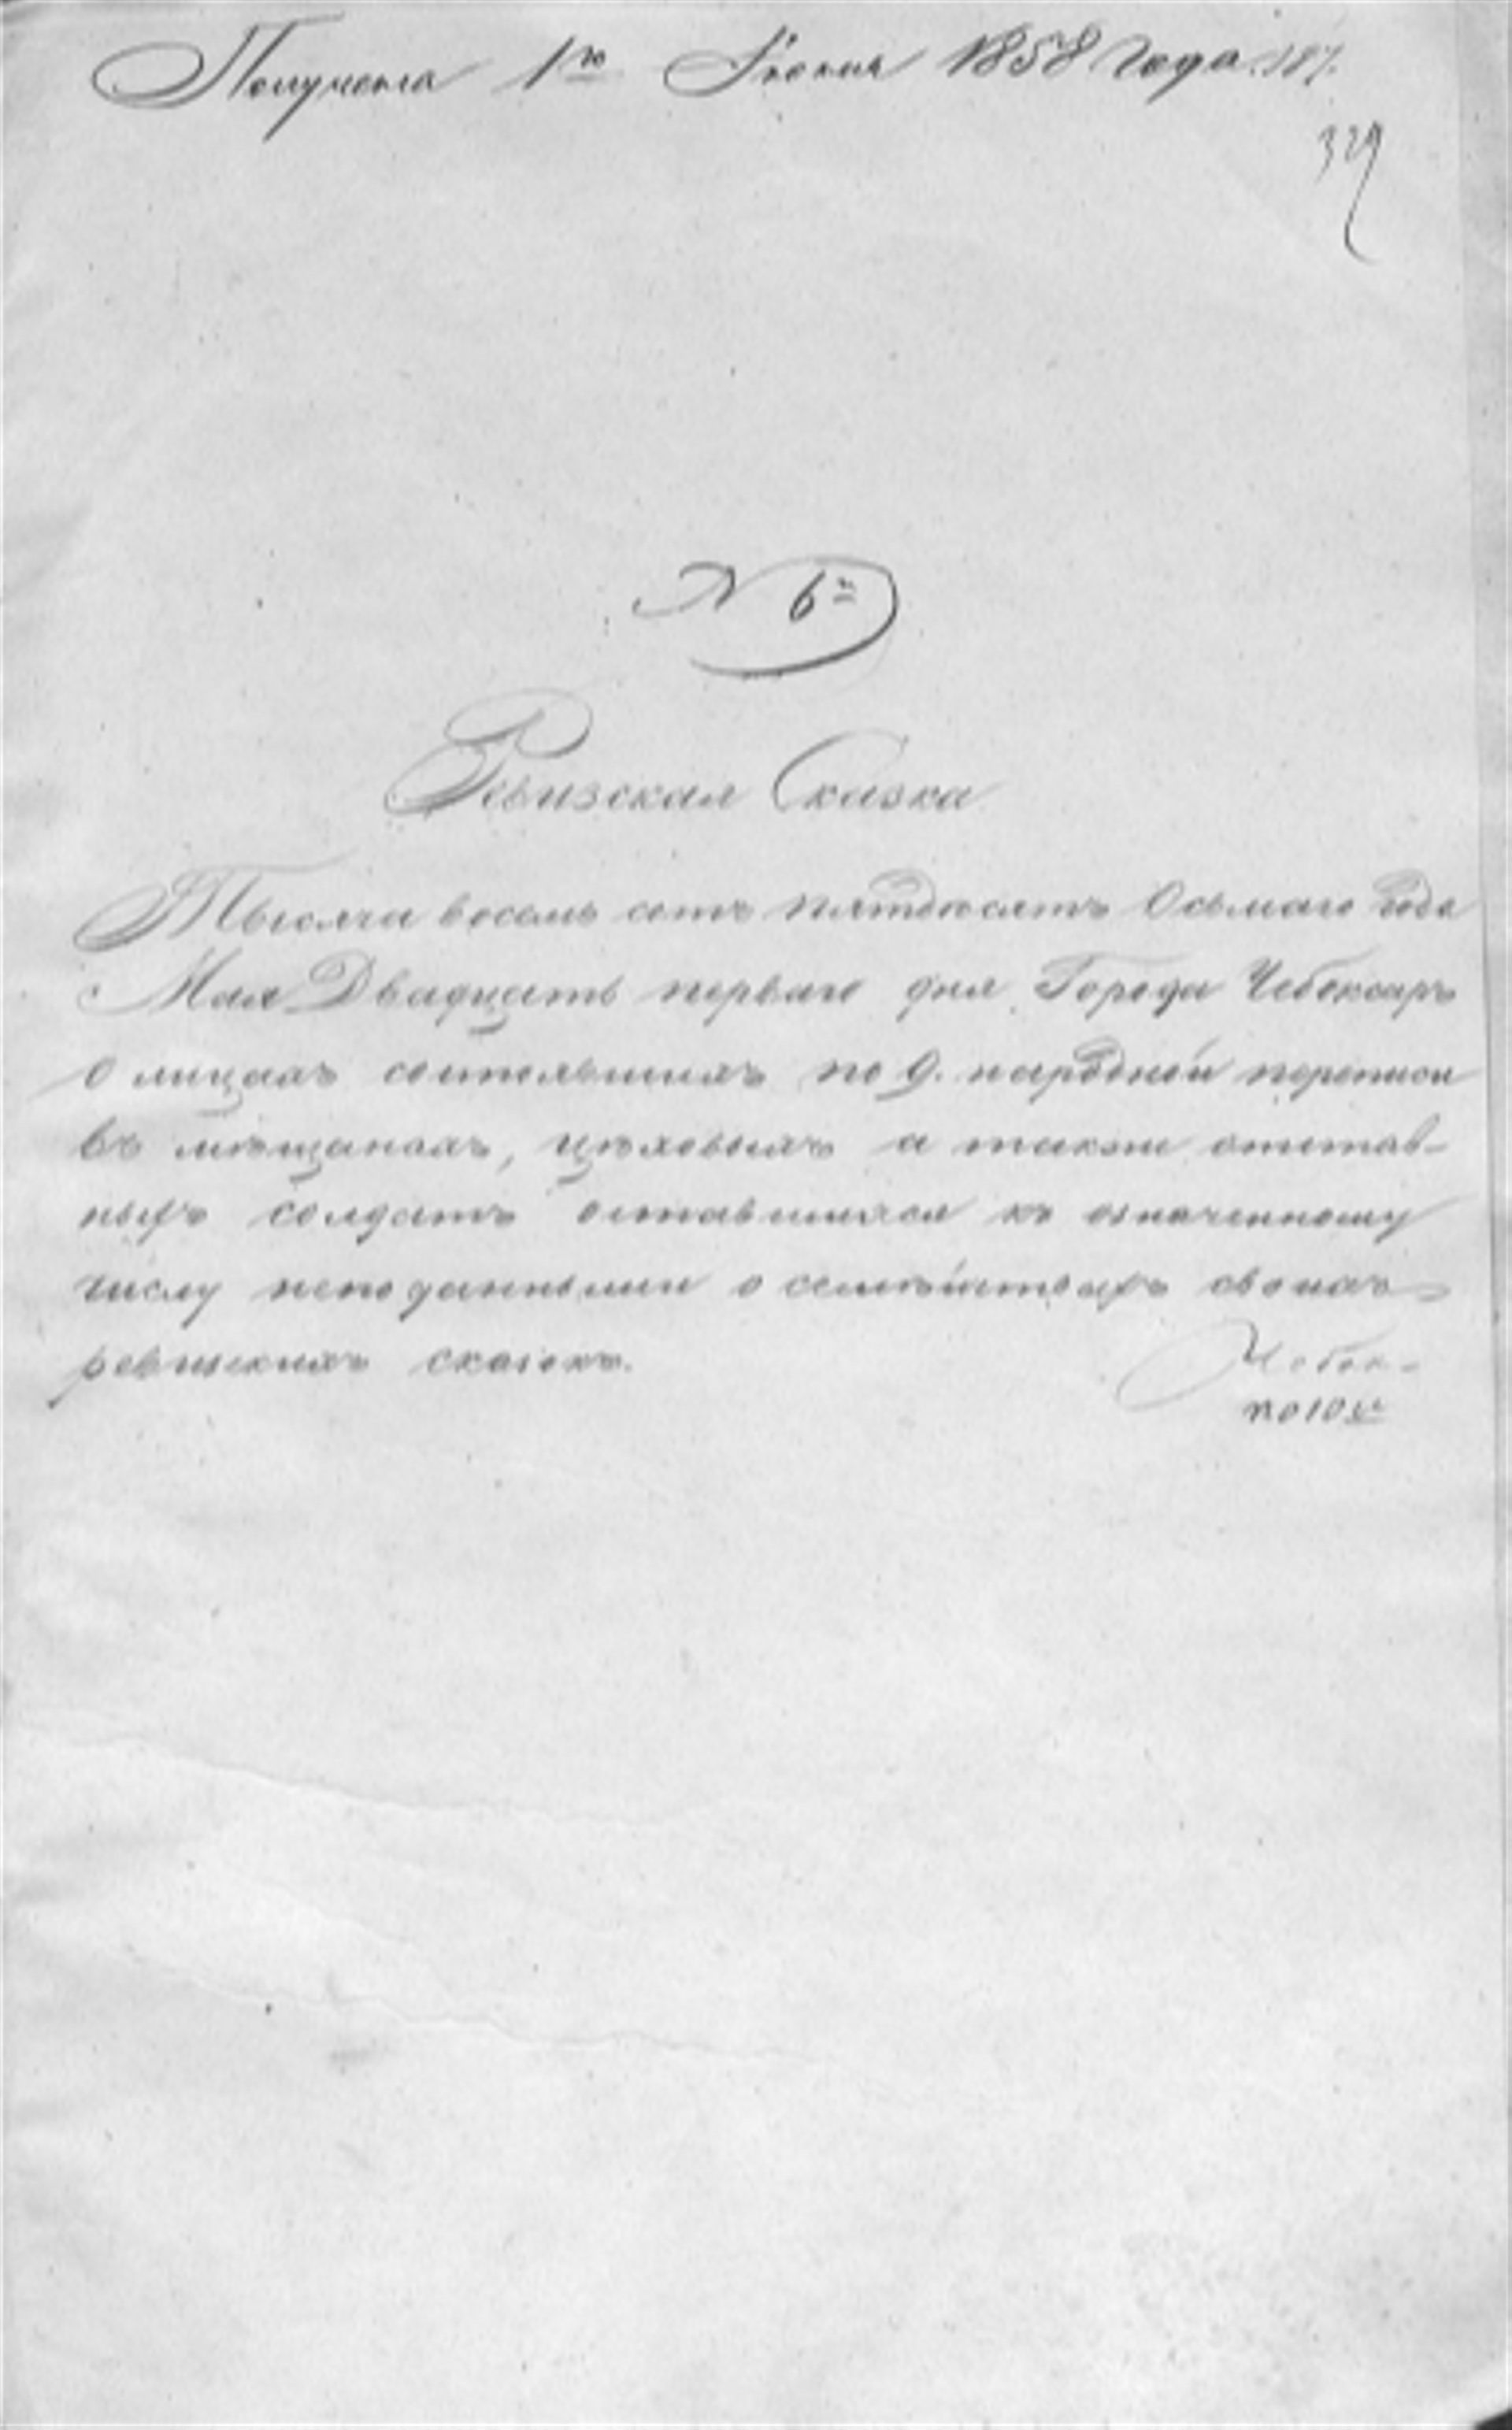 Получена 1го Июня 1858 года. 187.
329
N 6й
Ревизская Сказка
Тысяча восемь сотъ пятдесятъ Осьмаго года
Мая Двадцать перваго дня Города Чебоксаръ
О лицахъ состоявшихъ по 9. народной переписи
въ мѣщанахъ, цѣховыхъ а также отстав-
ныхъ солдатъ оставшихся къ означенному
числу неподанными о семействахъ своихъ
ревизскихъ сказокъ.
Чебок-
по 10й